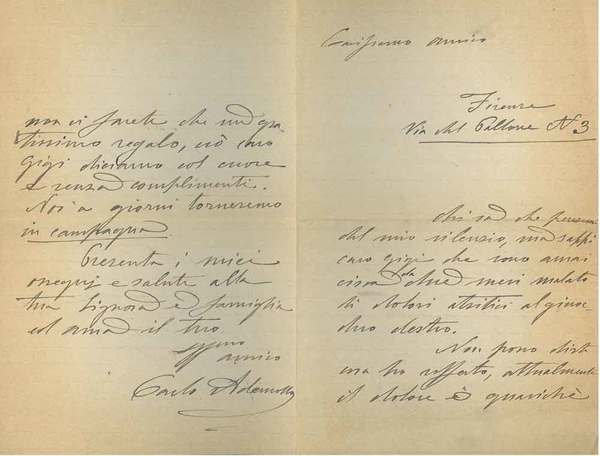 Carissimo amico
Firenze
Via del Pallone N 3
Chi sa che penserai
del mio silenzio, ma sappi
caro Gigi che sono ormai
circa da due mesi malato
di dolori artritici al ginoc
chio destro.
Non posso dirti
cosa ho sofferto, attualmente
il dolore è qualche
non ci farete che un gra-
tissimo regalo, ciò caro
Gigi diciamo col cuore
e senza complimenti.
Noi a giorni torneremo
in campagna.
Presenta i miei
ossequj e saluta alla
tua Signora e famiglia
ed ama il tuo
amico
Carlo Ademollo